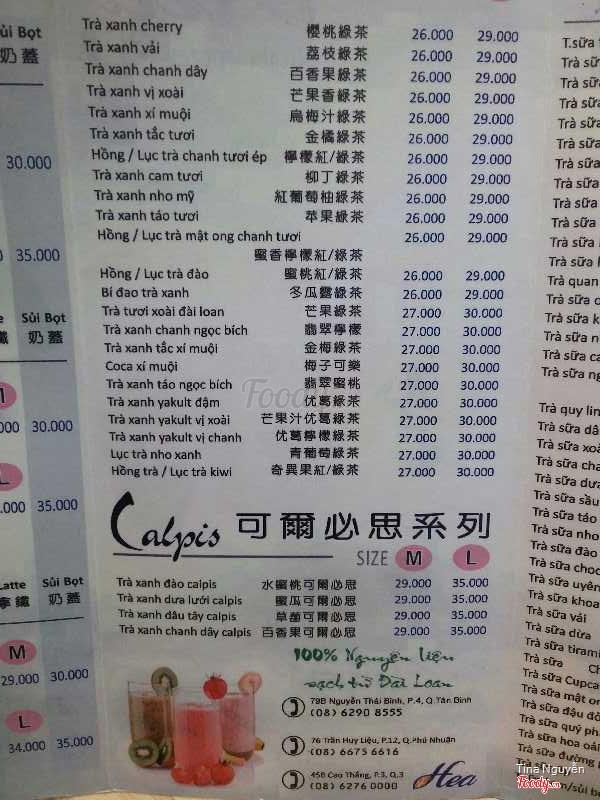 Sủi Bọt
奶蓋
30.000
35.000
Sủi Bọt
奶蓋
30.000
35.000
Latte
Sủi Bọt
拿鐵
奶蓋
M
29.000 30.000
L
34.000 35.000
Trà xanh cherry 櫻桃綠茶 26.000 29.000
Trà xanh vải 荔枝綠茶 26.000 29.000
Trà xanh chanh dây 百香果綠茶 26.000 29.000
Trà xanh vị xoài 芒果香綠茶 26.000 29.000
Trà xanh xí muội 烏梅汁綠茶 26.000 29.000
Trà xanh tắc tươi 金橘綠茶 26.000 29.000
Hồng / Lục trà chanh tươi ép 檸檬紅/綠茶 26.000 29.000
Trà xanh cam tươi 柳丁綠茶 26.000 29.000
Trà xanh nho mỹ 紅葡萄柚綠茶 26.000 29.000
Trà xanh táo tươi 苹果綠茶 26.000 29.000
Hồng / Lục trà mật ong chanh tươi 26.000 29.000
蜜香檸檬紅/綠茶
Hồng / Lục trà đào 蜜桃紅/綠茶 26.000 29.000
Bí đao trà xanh 冬瓜露綠茶 26.000 29.000
Trà tươi xoài đài loan 芒果綠茶 27.000 30.000
Trà xanh chanh ngọc bích 翡翠檸檬 27.000 30.000
Trà xanh tắc xí muội 金梅綠茶 27.000 30.000
Coca xí muội 梅子可樂 27.000 30.000
Trà xanh táo ngọc bích 翡翠蜜桃 27.000 30.000
Trà xanh yakult đậm 优葛綠茶 27.000 30.000
Trà xanh yakult vị xoài 芒果汁优葛綠茶 27.000 30.000
Trà xanh yakult vị chanh 优葛檸檬綠茶 27.000 30.000
Lục trà nho xanh 青葡萄綠茶 27.000 30.000
Hồng trà / Lục trà kiwi 奇異果紅/綠茶 27.000 30.000
Calpis 可爾必思系列
SIZE M L
Trà xanh đào calpis 水蜜桃可爾必思 29.000 35.000
Trà xanh dưa lưới calpis 蜜瓜可爾必思 29.000 35.000
Trà xanh dâu tây calpis 草莓可爾必思 29.000 35.000
Trà xanh chanh dây calpis 百香果可爾必思 29.000 35.000
100% Nguyên liệu
sạch từ Đài Loan
79B Nguyễn Thái Bình, P.4, Q.Tân Bình
(08) 6290 8555
76 Trần Huy Liệu, P.12, Q.Phú Nhuận
(08) 6675 6616
458 Cao Thắng, P.3, Q.3
(08) 6276 0000
Hea
T.sữa
Trà sữ
Trà quan
Trà quy lin
Trà sữa dâ
Trà sữa xoà
Trà sữa cha
Trà sữa dưa
Trà sữa sầu
Trà sữa táo
Trà sữa nho
Trà sữa đào
Trà sữa choc
Trà sữa uyên
Trà sữa khoa
Trà sữa vải
Trà sữa dừa
Trà sữa tirami
Trà sữa Ch
Trà sữa Cupca
Trà sữa mật on
Trà sữa đậu đỏ
Trà sữa quý ph
Trà sữa hoa oải
Trà sữa đường
Tina Nguyễn
Foody.vn